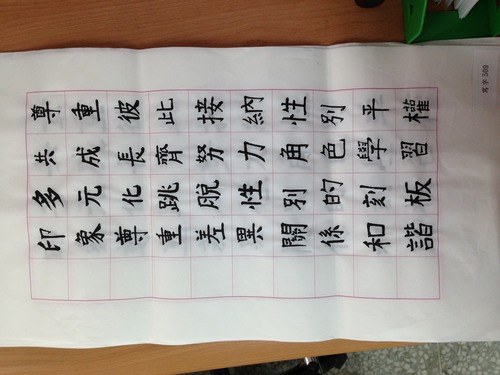 尊重彼此接納性別平權
共成長齊努力角色學習
多元化跳脫性別的刻板
印象尊重差異關係和諧
寫字 509